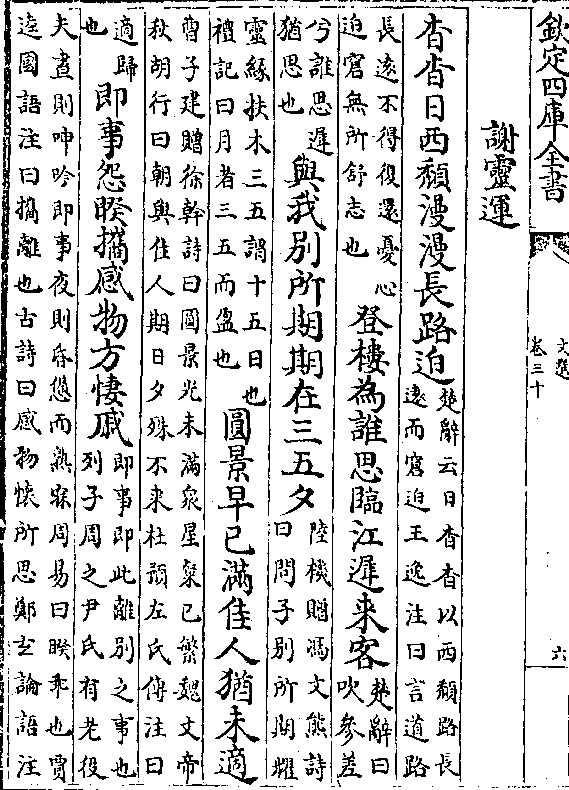 欽定四庫全書
文選
卷三十
六
謝靈運
杳杳日西頹漫漫長路迫楚辭云日杳杳以西頹路長
遠而窘迫王逸注曰言道路
長遠不得復還憂心
迫窘無所舒志也登樓為誰思臨江遲来客楚辭曰
吹參差
兮誰思遲
猶思也與我别所期期在三五夕陸機贈馮文熊詩
曰問子别所期耀
靈緣扶木三五謂十五日也
禮記曰月者三五而盈也圓景早已滿佳人猶未適
曹子建贈徐幹詩曰圓景光未滿衆星粲已繁魏文帝
秋胡行曰朝與佳人期日夕殊不来杜預左氏傳注曰
適歸
也即事怨睽攜感物方悽戚即事即此離别之事也
列子周之尹氏有老役
夫晝則呻吟即事夜則昏憊而熟寐周易曰睽乖也賈
逵國語注曰攜離也古詩曰感物懷所思鄭玄論語注